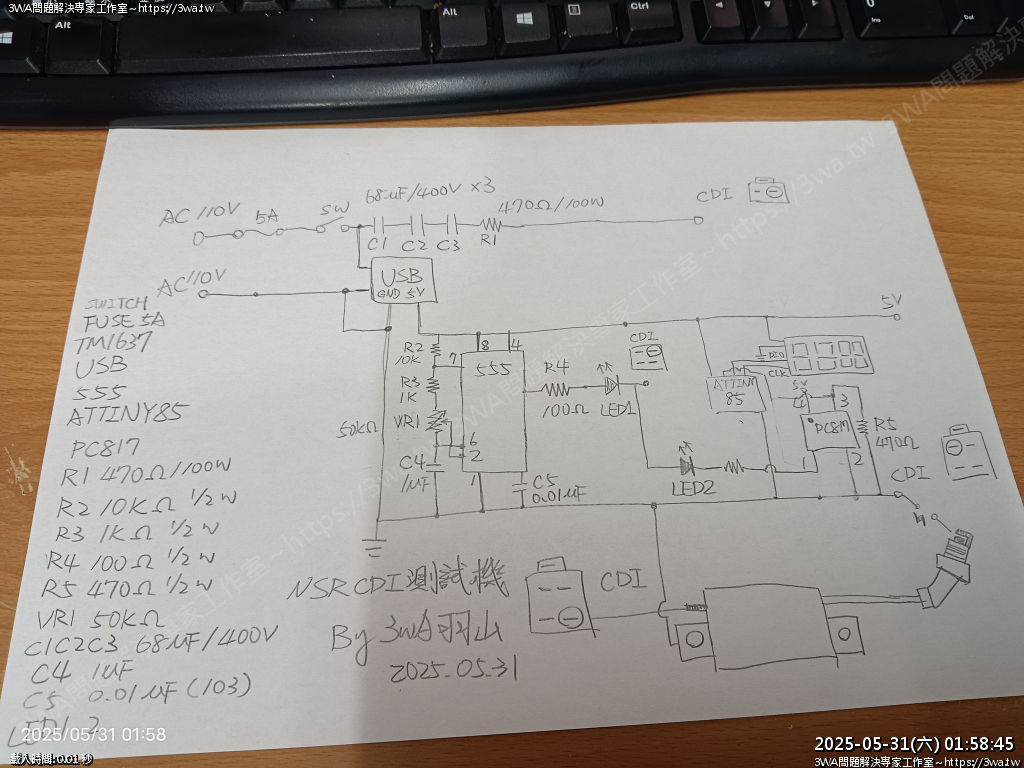 3WA問題解決專家工作室~https://3wa.tw
Alt
Alt
Ctrl
0
Ins
Del
68uF/400V x3
470Ω/100W
CDI
AC 110V
5A
SW
C1 C2 C3 R1
AC 110V
USB
GND 5V
5V
SWITCH
FUSE 5A
TM1637
USB
555
ATTINY85
PC817
R1 470Ω/100W
R2 10KΩ 1/2W
R3 1KΩ 1/2W
R4 100Ω 1/2W
R5 470Ω 1/2W
VR1 50KΩ
C1C2C3 68uF/400V
C4 1uF
C5 0.01uF(103)
R2
10K
7
8
4
555
R3
1K
VR1
50KΩ
6
2
C4
1uF
1
C5
0.01uF
R4
100Ω
LED1
CDI
LED2
DIO
CLK
ATTINY
85
5V
4
3
PC817
1
2
R5
470Ω
CDI
NSR CDI測試機
By 3WA羽山
2025.05.31
CDI
2025/05/31 01:58
載入時間:0.01 秒
2025-05-31(六) 01:58:45
3WA問題解決專家工作室~https://3wa.tw